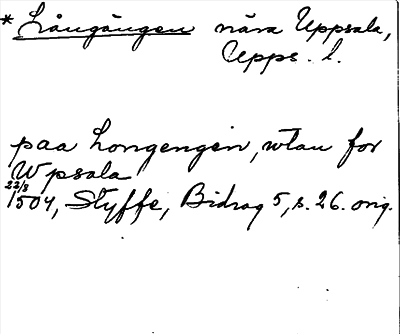 * Långängen nära Uppsala,
Upps. l.
paa Longengen, wtan for
Wpsala
22/8 1504, Styffe, Bidrag 5, s. 26. orig.